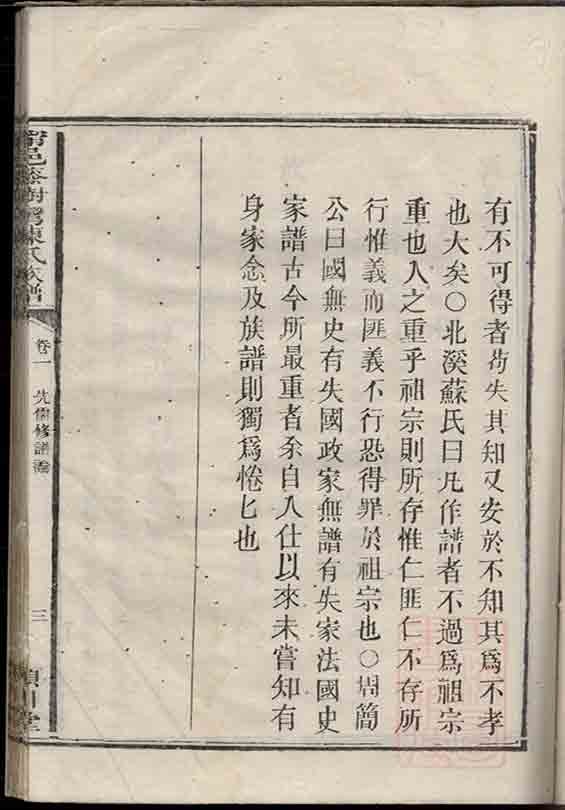 有不可得者苟失其知又安於不知其爲不孝
也大矣〇北溪蘇氏曰凡作譜者不過爲祖宗
重也人之重乎祖宗則所存惟仁匪仁不存所
行惟義而匪義不行恐得罪於祖宗也〇周簡
公曰國無史有失國政家無譜有失家法國史
家譜古今所最重者余自入仕以來未嘗知有
身家念及族譜則獨爲惓匕也
甯邑 樹灣陳氏族譜
卷一
先儒修譜論
三
潁川堂